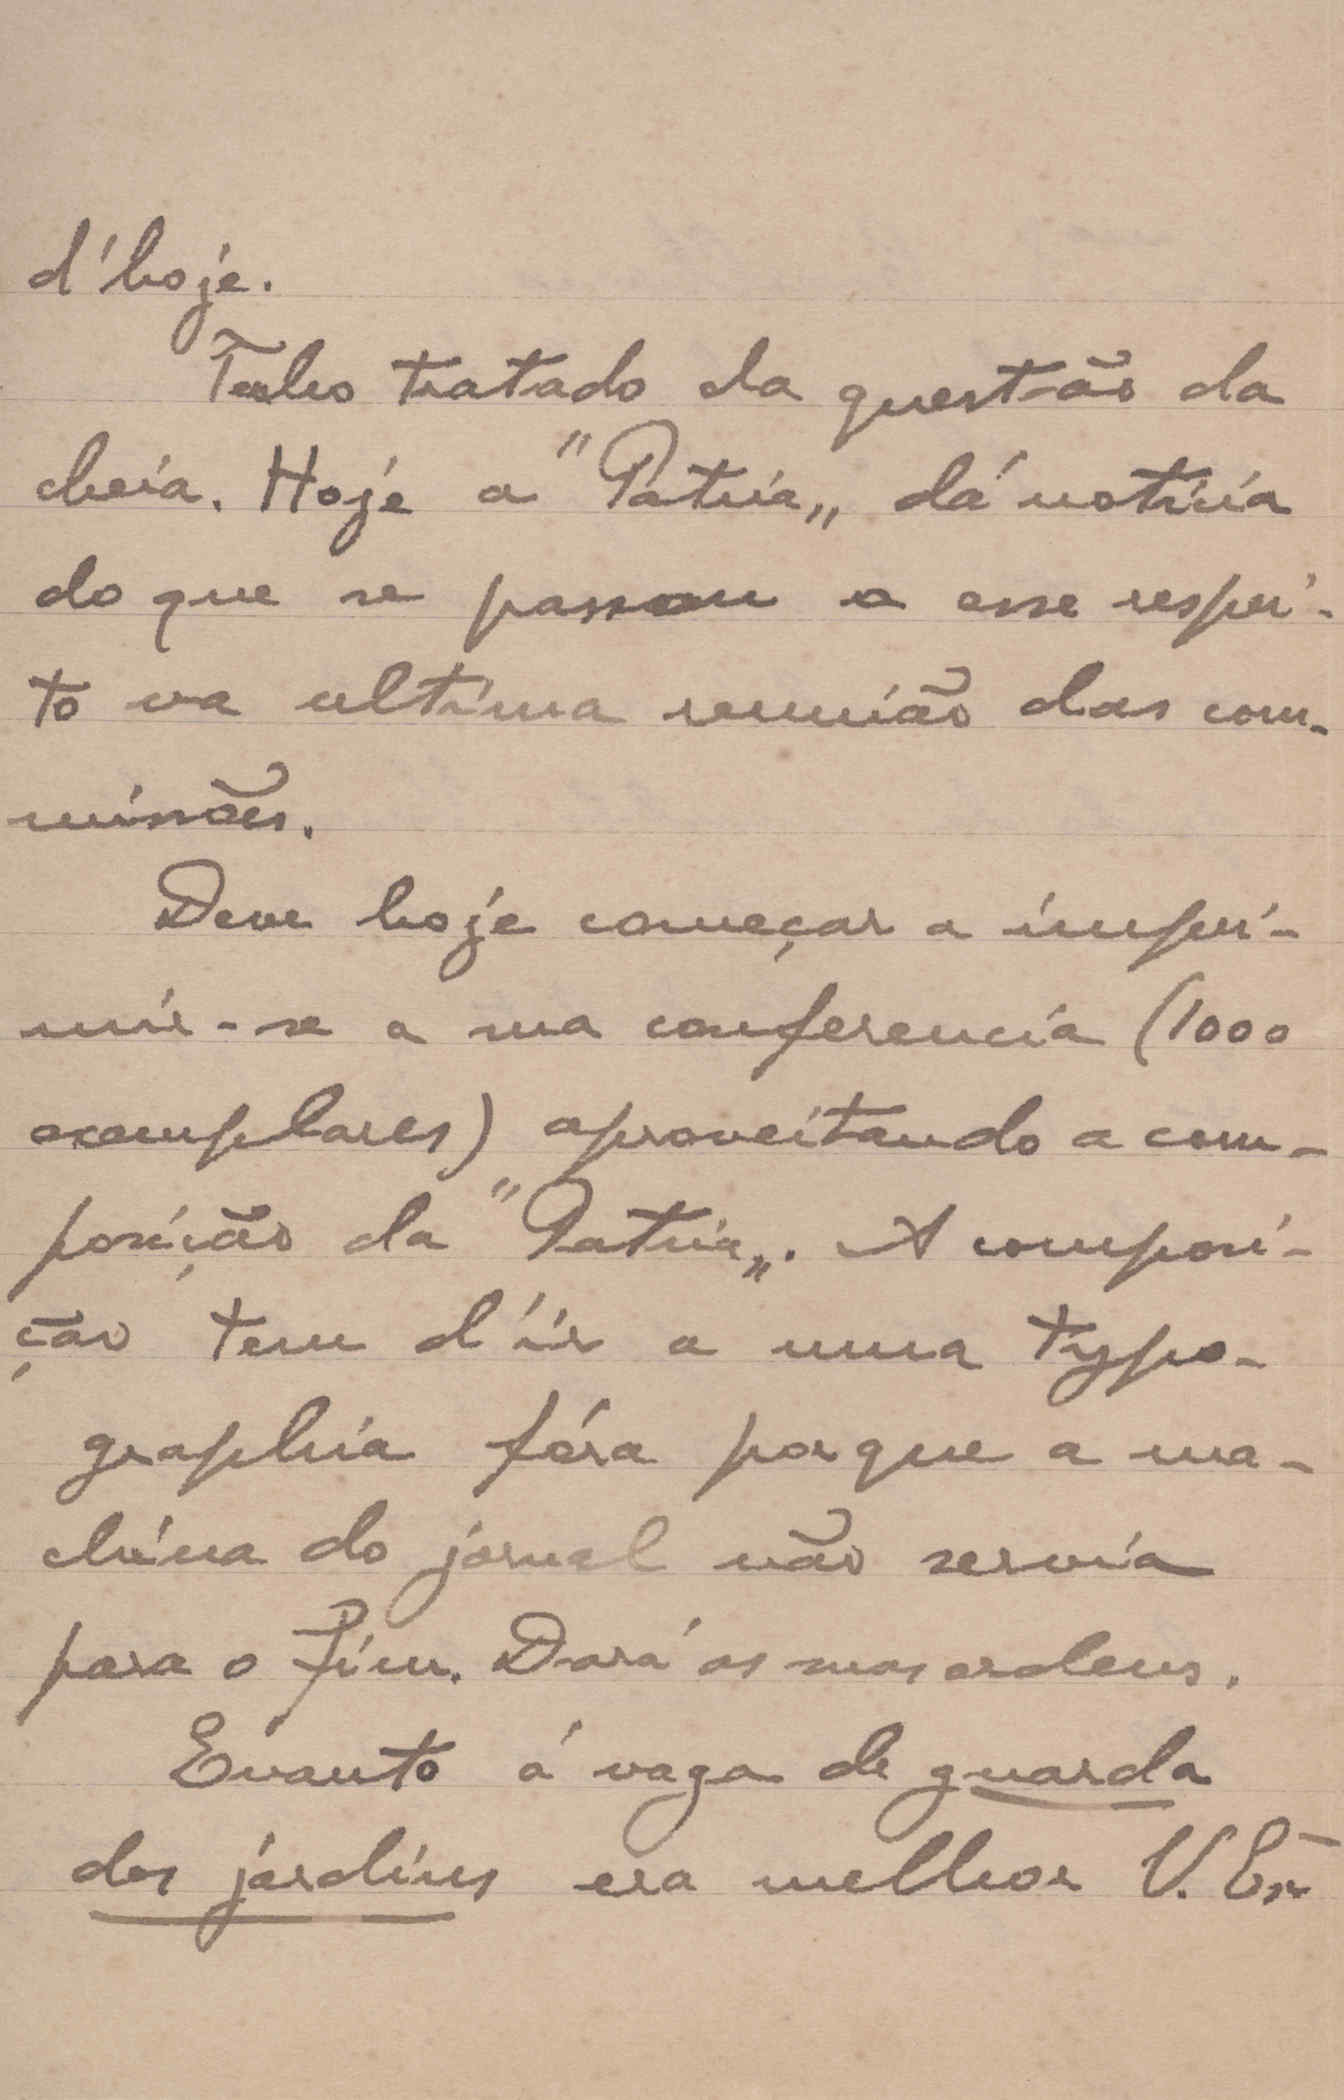 d'hoje.
Tenho tratado da questão da
cheia. Hoje a "Patria" dá noticia
do que se passou a esse respei-
to na ultima reunião das com-
missões.
Deve hoje começar a impri-
mir-se a sua conferencia (1000
exemplares) aproveitando a com-
posição da "Patria". A composi-
ção tem d'ir a uma typo-
graphia fóra porque a ma-
china do jornal não servia
para o fim. Dará as suas ordens.
Quanto á vaga de guarda
dos jardins era melhor V. Ex.